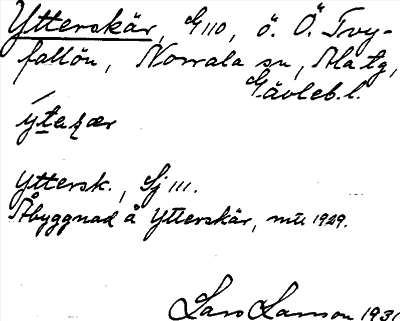 Ytterskär, G 110, ö. Ö. Tvy-
fallön, Norrala sn, Ala tg,
Gävleb. l.
Yttersk., Sj 111.
Åbyggnad å Ytterskär, mtl 1929.
Lars Larsson 1931